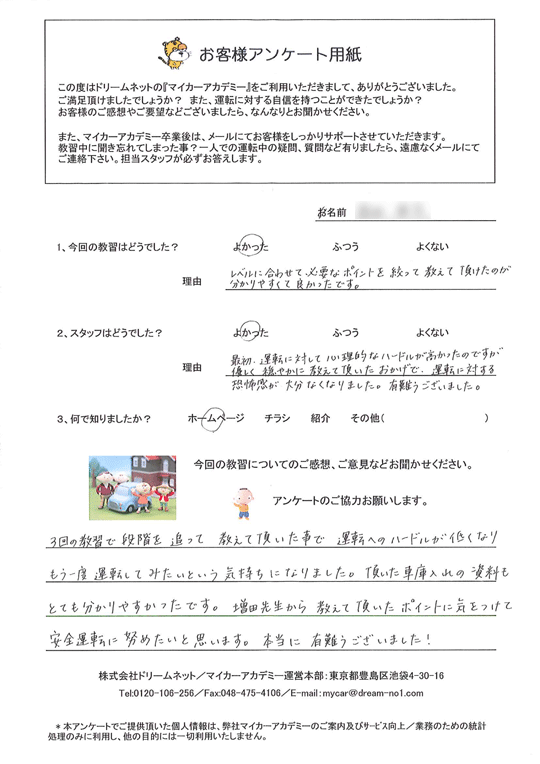 お客様アンケート用紙
この度はドリームネットの『マイカーアカデミー』をご利用いただきまして、ありがとうございました。
ご満足頂けましたでしょうか？ また、運転に対する自信を持つことができたでしょうか？
お客様のご感想やご要望などございましたら、なんなりとお聞かせください。
また、マイカーアカデミー卒業後は、メールにてお客様をしっかりサポートさせていただきます。
教習中に聞き忘れてしまった事？一人での運転中の疑問、質問など有りましたら、遠慮なくメールにて
ご連絡下さい。担当スタッフが必ずお答えします。
お名前
1、今回の教習はどうでした？ よかった ふつう よくない
理由 レベルに合わせて必要なポイントを絞って教えて頂けたのが
分かりやすくて良かったです。
2、スタッフはどうでした？ よかった ふつう よくない
理由 最初、運転に対して心理的なハードルが高かったのですが
優しく穏やかに教えて頂いたおかげで、運転に対する
恐怖感が大分なくなりました。有難うございました。
3、何で知りましたか？ ホームページ チラシ 紹介 その他( )
今回の教習についてのご感想、ご意見などお聞かせください。
アンケートのご協力お願いします。
3回の教習で段階を追って教えて頂いた事で運転へのハードルが低くなり
もう一度運転してみたいという気持ちになりました。頂いた車庫入れの資料も
とても分かりやすかったです。増田先生から教えて頂いたポイントに気をつけて
安全運転に努めたいと思います。本当に有難うございました！
株式会社ドリームネット／マイカーアカデミー運営本部：東京都豊島区池袋4-30-16
Tel:0120-106-256／Fax:048-475-4106／E-mail：mycar@dream-no1.com
＊本アンケートでご提供頂いた個人情報は、弊社マイカーアカデミーのご案内及びサービス向上／業務のための統計
処理のみに利用し、他の目的には一切利用いたしません。